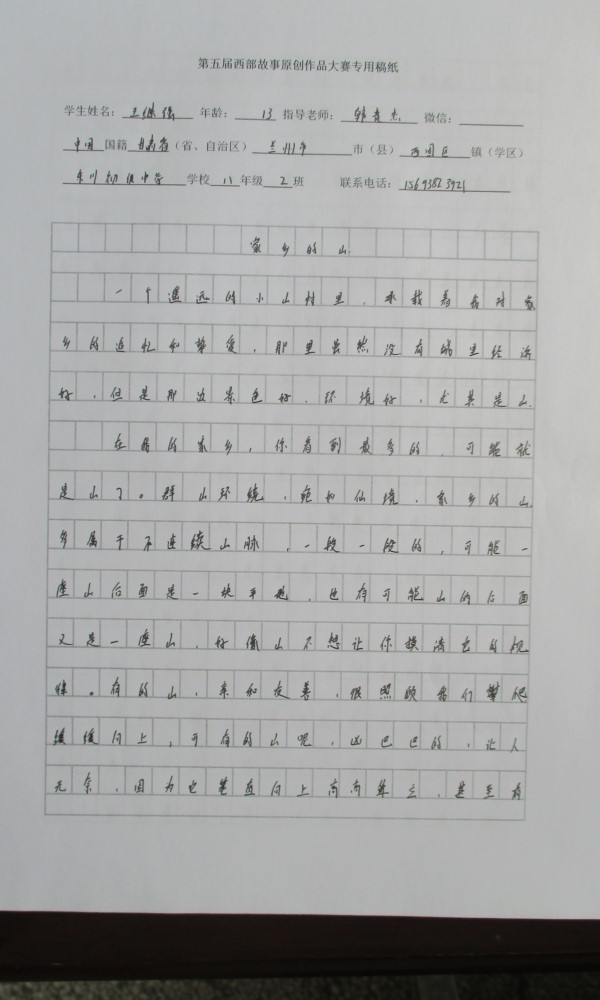 第五届西部故事原创作品大赛专用稿纸
学生姓名： 年龄：13 指导老师： 微信：
中国国籍 甘肃省（省、自治区） 兰州市 市（县） 西固区 镇（学区）
东川初级中学 学校 八年级 2班 联系电话：15693823921
家乡的山
一个遥远的小山村里，承载着我对家
乡的追忆和挚爱，那里虽然没有 经济
好，但是那边景色好，环境好，尤其是山.
在我的家乡，你看到最多的，可能就
是山了。群山环绕，宛如仙境，家乡的山
多属于不连续山脉，一段一段的，可能一
座山后面是一块平地，也有可能山的后面
又是一座山，好像山不想让你摸清它的规
律。有的山，亲和友善，很照顾我们攀爬
缓缓向上，可有的山呢，凶巴巴的，让人
无奈，因为它笔直向上高高耸立，甚至有